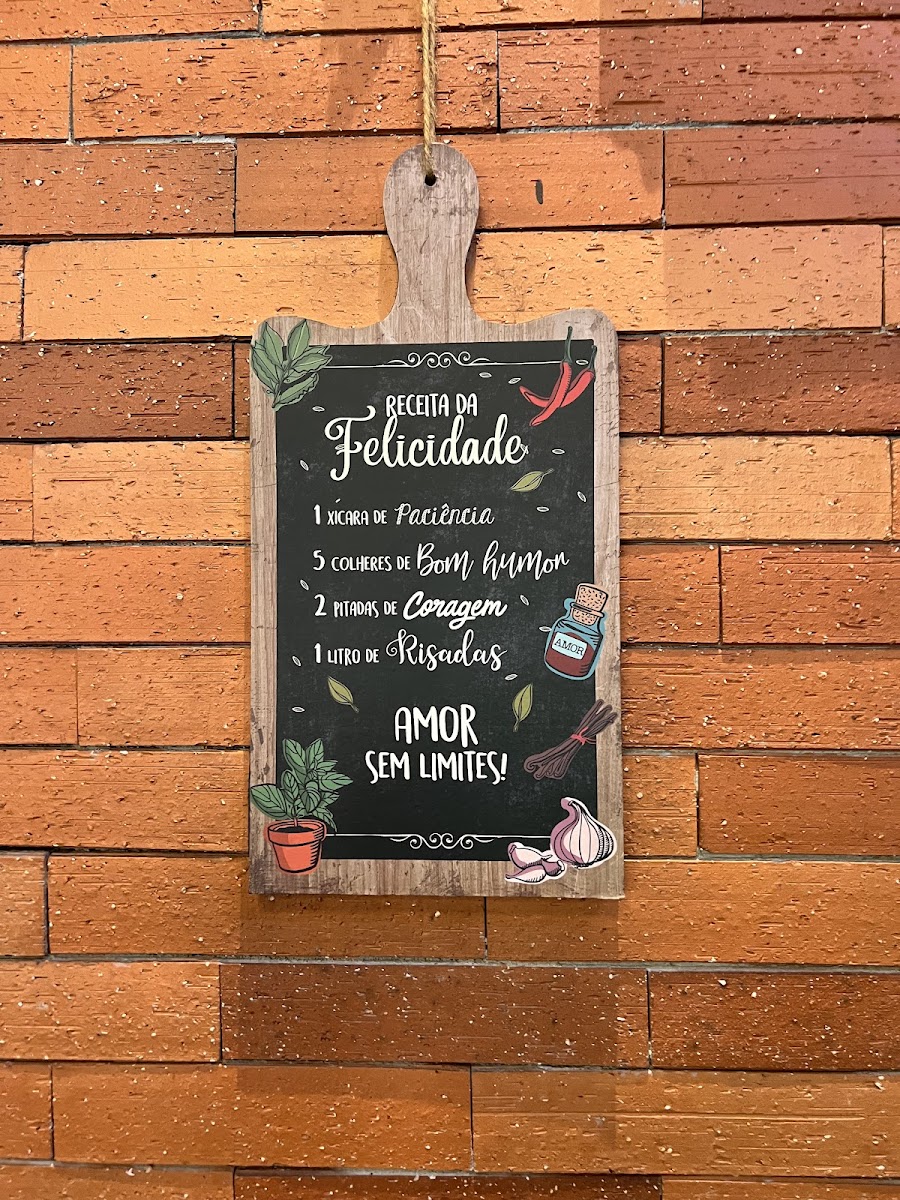 RECEITA DA
Felicidade
1 XÍCARA DE Paciência
5 COLHERES DE Bom humor
2 PITADAS DE Coragem
1 LITRO DE Risadas
AMOR
AMOR
SEM LIMITES!